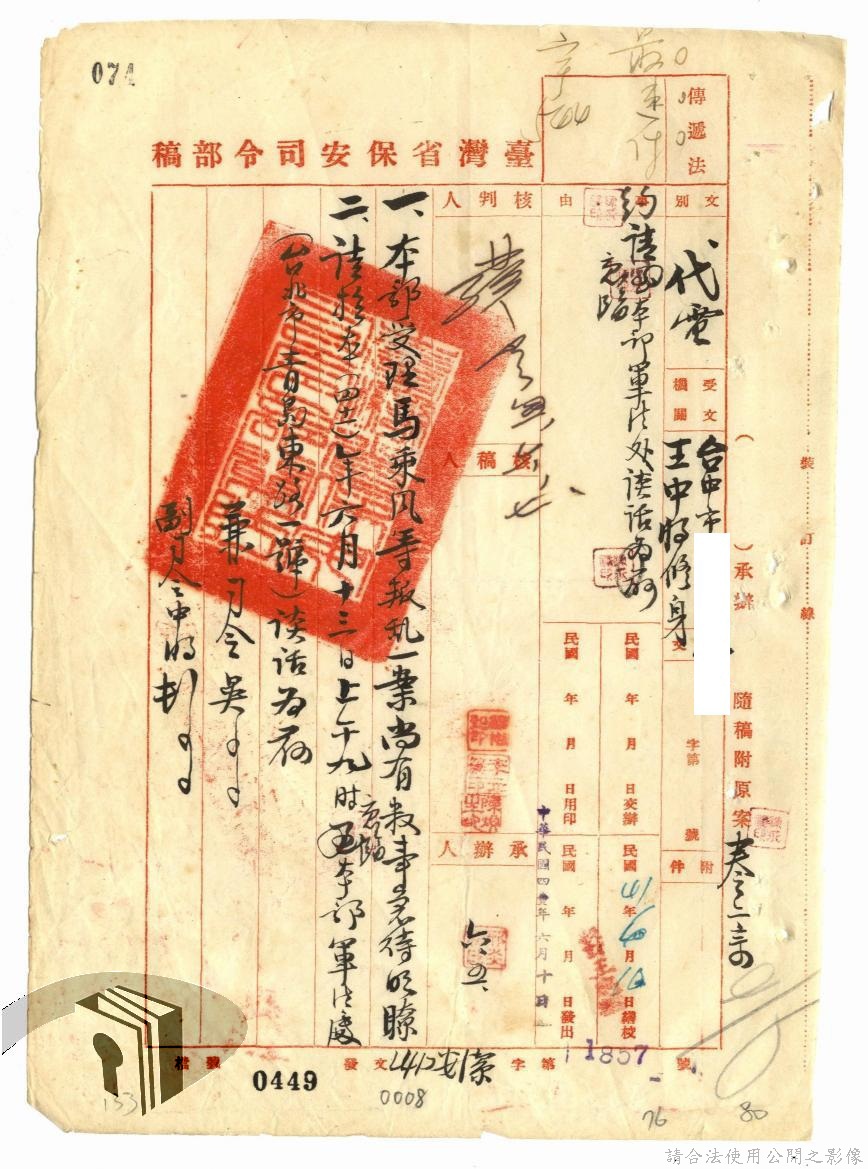 074
傳遞法
臺灣省保安司令部稿
文別
代電
受文機關
台中市
王中將修身
(　　　)承辦　隨稿附原案
附件
字第　　號
由
約請惠臨本部軍法處談話為荷
民國　年　月　日交辦
民國41年6月10日繕校
民國　年　月　日用印
民國　年　月　日發出
中華民國四壹年六月十日
核判人
核稿人
承辦人
六、五、
一、本部受理馬乘風等叛亂一案尚有數事急待明瞭
二、請於本(四十一)年六月十三日上午九時惠臨本部軍法處
(台北市青島東路一號)談話為荷
兼司令吳
副司令中將彭
裝訂線
檔號
0449
發文
字第
1857
號
0008
153
76
80
請合法使用公開之影像